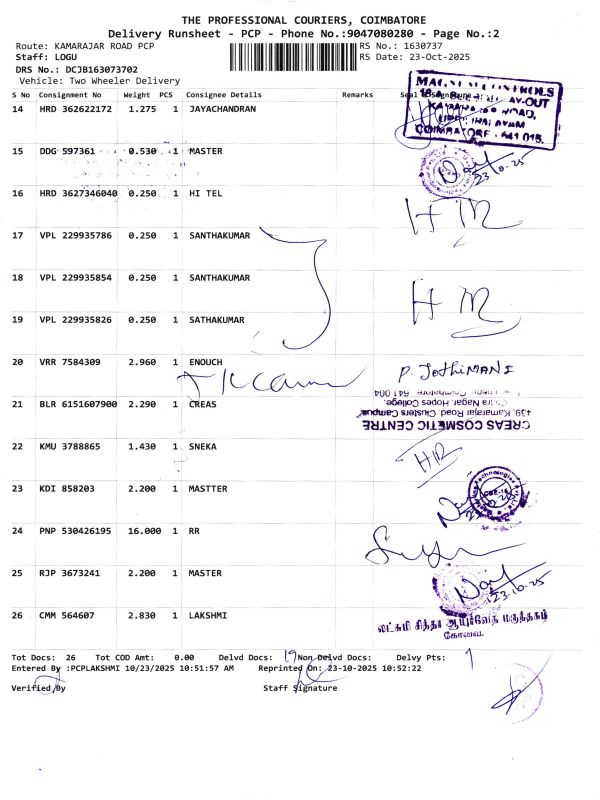 THE PROFESSIONAL COURIERS, COIMBATORE
Delivery Runsheet - PCP - Phone No.:9047080280 - Page No.:2
Route: KAMARAJAR ROAD PCP RS No.: 1630737
Staff: LOGU RS Date: 23-Oct-2025
DRS No.: DCJB163073702
Vehicle: Two Wheeler Delivery
S No Consignment No Weight PCS Consignee Details Remarks Seal
14 HRD 362622172 1.275 1 JAYACHANDRAN
COIMBATORE - 641 015.
15 DDG 597361 0.530 1 MASTER
23-10-25
16 HRD 3627346040 0.250 1 HI TEL
17 VPL 229935786 0.250 1 SANTHAKUMAR
18 VPL 229935854 0.250 1 SANTHAKUMAR
19 VPL 229935826 0.250 1 SATHAKUMAR
20 VRR 7584309 2.960 1 ENOUCH
P. JothiMANI
21 BLR 6151607900 2.290 1 CREAS
CREAS COSMETIC CENTRE
439, Kamarajar Road, Clusters Campus
Nagar, Hopes College,
641 004
22 KMU 3788865 1.430 1 SNEKA
23 KDI 858203 2.200 1 MASTTER
24 PNP 530426195 16.000 1 RR
25 RJP 3673241 2.200 1 MASTER
23-10-25
26 CMM 564607 2.830 1 LAKSHMI
லட்சுமி சித்தா ஆயுர்வேத மருந்தகம்
கோவை.
Tot Docs: 26 Tot COD Amt: 0.00 Delvd Docs: 19 Non Delvd Docs: Delvy Pts: 1
Entered By :PCPLAKSHMI 10/23/2025 10:51:57 AM Reprinted On: 23-10-2025 10:52:22
Verified By Staff Signature